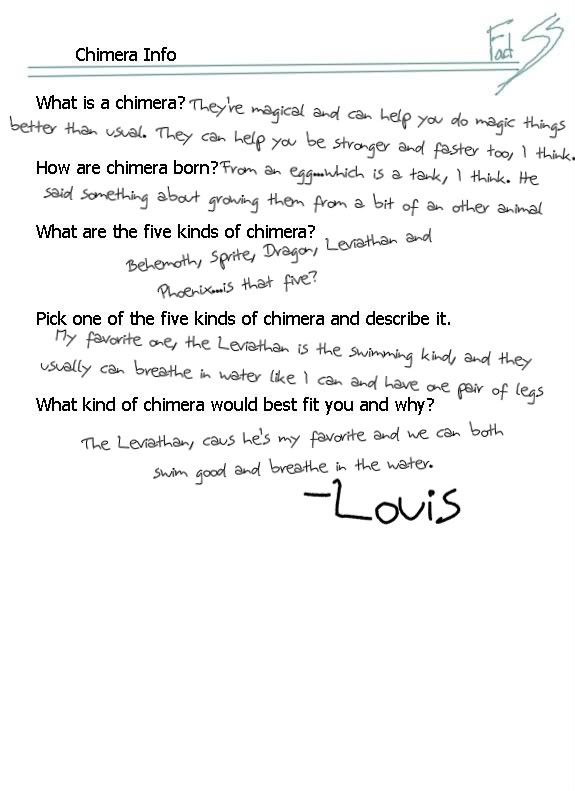 Chimera Info
What is a chimera? They're magical and can help you do magic things
better than usual. They can help you be stronger and faster too, I think.
How are chimera born? From an egg...which is a tank, I think. He
said something about growing them from a bit of an other animal
What are the five kinds of chimera?
Behemoth, Sprite, Dragon, Leviathan and
Phoenix...is that five?
Pick one of the five kinds of chimera and describe it.
My favorite one, the Leviathan is the swimming kind, and they
usually can breathe in water like I can and have one pair of legs
What kind of chimera would best fit you and why?
The Leviathan, caus he's my favorite and we can both
swim good and breathe in the water.
-Louis